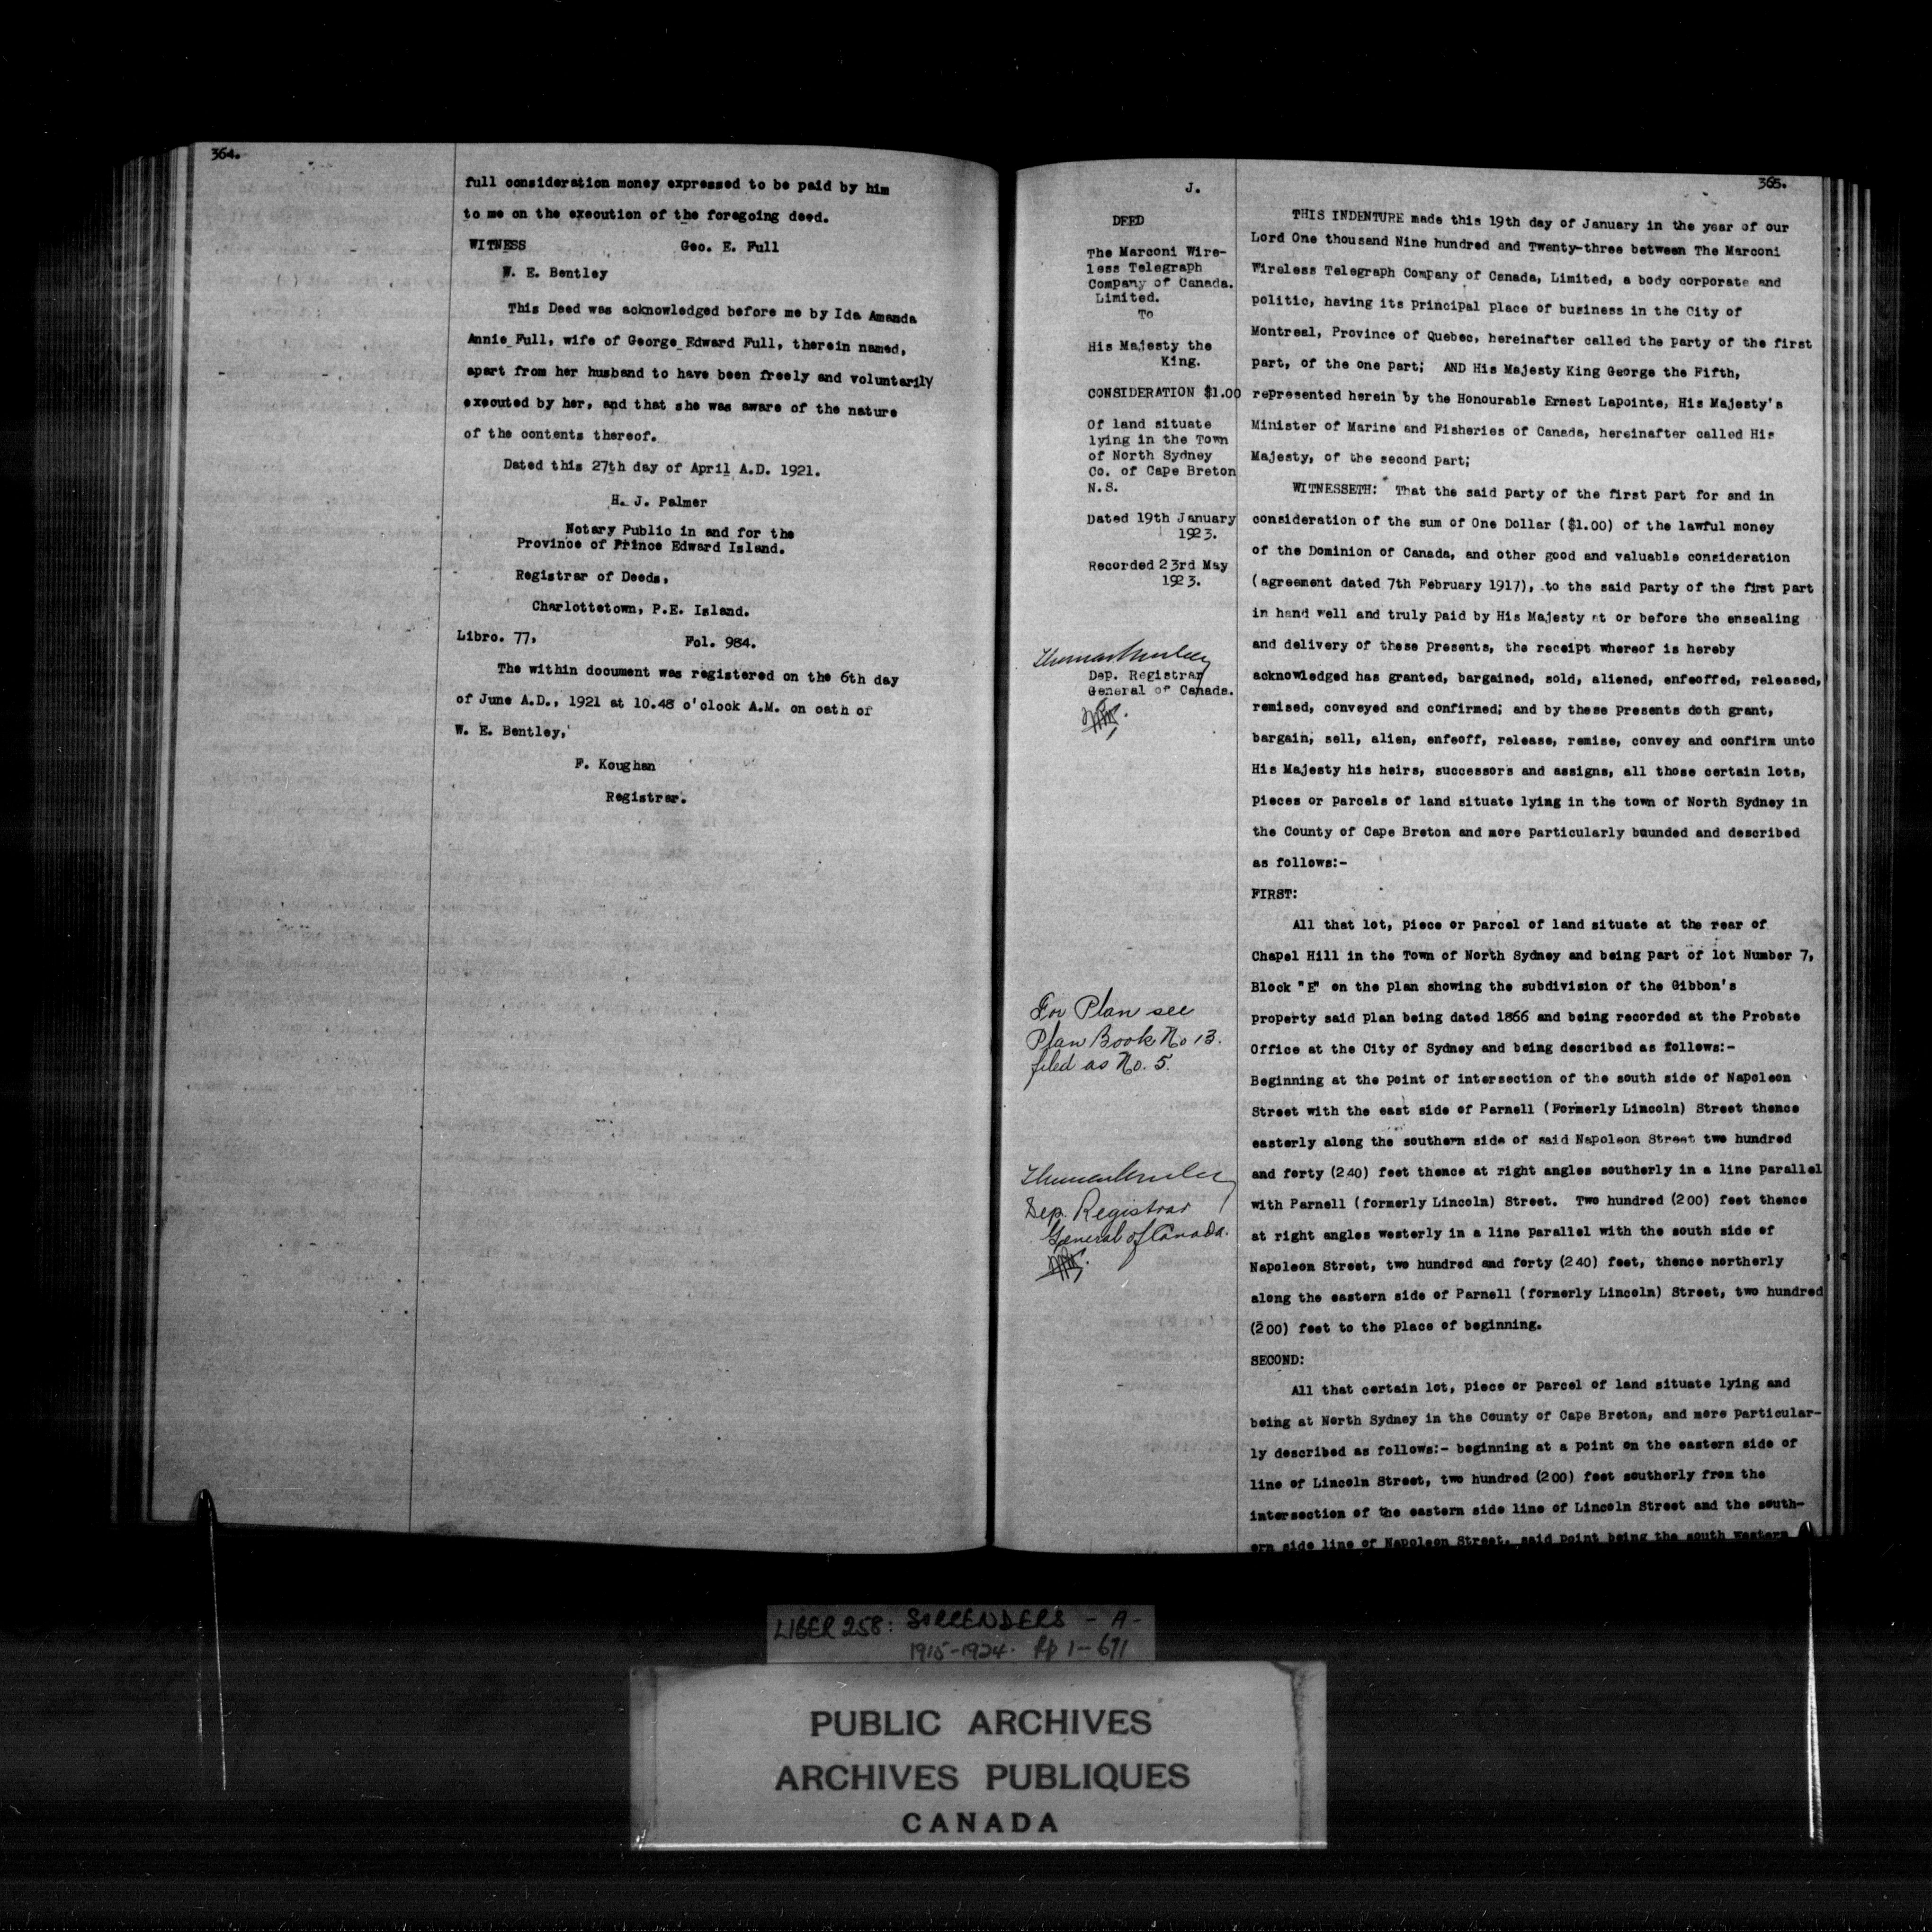 364.
full consideration money expressed to be paid by him
to me on the execution of the foregoing deed.
WITNESS Geo. E. Full
W. E. Bentley
This Deed was acknowledged before me by Ida Amanda
Annie Full, wife of George Edward Full, therein named,
apart from her husband to have been freely and voluntarily
executed by her, and that she was aware of the nature
of the contents thereof.
Dated this 27th day of April A.D. 1921.
H. J. Palmer
Notary Public in and for the
Province of Prince Edward Island.
Registrar of Deeds,
Charlottetown, P.E. Island.
Libro. 77, Fol. 984.
The within document was registered on the 6th day
of June A.D., 1921 at 10.48 o'clock A.M. on oath of
W. E. Bentley,
F. Koughan
Registrar.
365.
J.
DEED
The Marconi Wire-
less Telegraph
Company of Canada.
Limited.
To
His Majesty the
King.
CONSIDERATION $1.00
Of land situate
lying in the Town
of North Sydney
Co. of Cape Breton
N.S.
Dated 19th January
1923.
Recorded 23rd May
1923.
Dep. Registrar
General of Canada.
For Plan see
Plan Book No 13.
filed as No. 5.
Dep. Registrar
General of Canada.
THIS INDENTURE made this 19th day of January in the year of our
Lord One thousand Nine hundred and Twenty-three between The Marconi
Wireless Telegraph Company of Canada, Limited, a body corporate and
politic, having its principal place of business in the City of
Montreal, Province of Quebec, hereinafter called the party of the first
part, of the one part; AND His Majesty King George the Fifth,
represented herein by the Honourable Ernest Lapointe, His Majesty's
Minister of Marine and Fisheries of Canada, hereinafter called His
Majesty, of the second part;
WITNESSETH: That the said party of the first part for and in
consideration of the sum of One Dollar ($1.00) of the lawful money
of the Dominion of Canada, and other good and valuable consideration
(agreement dated 7th February 1917), to the said party of the first part
in hand well and truly paid by His Majesty at or before the ensealing
and delivery of these presents, the receipt whereof is hereby
acknowledged has granted, bargained, sold, aliened, enfeoffed, released,
remised, conveyed and confirmed; and by these presents doth grant,
bargain, sell, alien, enfeoff, release, remise, convey and confirm unto
His Majesty his heirs, successors and assigns, all those certain lots,
pieces or parcels of land situate lying in the town of North Sydney in
the County of Cape Breton and more particularly baunded and described
as follows:-
FIRST:
All that lot, piece or parcel of land situate at the rear of
Chapel Hill in the Town of North Sydney and being part of lot Number 7,
Block "E" on the plan showing the subdivision of the Gibbon's
property said plan being dated 1866 and being recorded at the Probate
Office at the City of Sydney and being described as follows:-
Beginning at the point of intersection of the south side of Napoleon
Street with the east side of Parnell (Formerly Lincoln) Street thence
easterly along the southern side of said Napoleon Street two hundred
and forty (240) feet thence at right angles southerly in a line parallel
with Parnell (formerly Lincoln) Street. Two hundred (200) feet thence
at right angles westerly in a line parallel with the south side of
Napoleon Street, two hundred and forty (240) feet, thence northerly
along the eastern side of Parnell (formerly Lincoln) Street, two hundred
(200) feet to the place of beginning.
SECOND:
All that certain lot, piece or parcel of land situate lying and
being at North Sydney in the County of Cape Breton, and more particular-
ly described as follows:- beginning at a point on the eastern side of
line of Lincoln Street, two hundred (200) feet southerly from the
intersection of the eastern side line of Lincoln Street and the south-
ern side line of Napoleon Street, said point being the south western
LIBER 258: SURRENDERS - A -
1915-1924. pp 1-671
PUBLIC ARCHIVES
ARCHIVES PUBLIQUES
CANADA